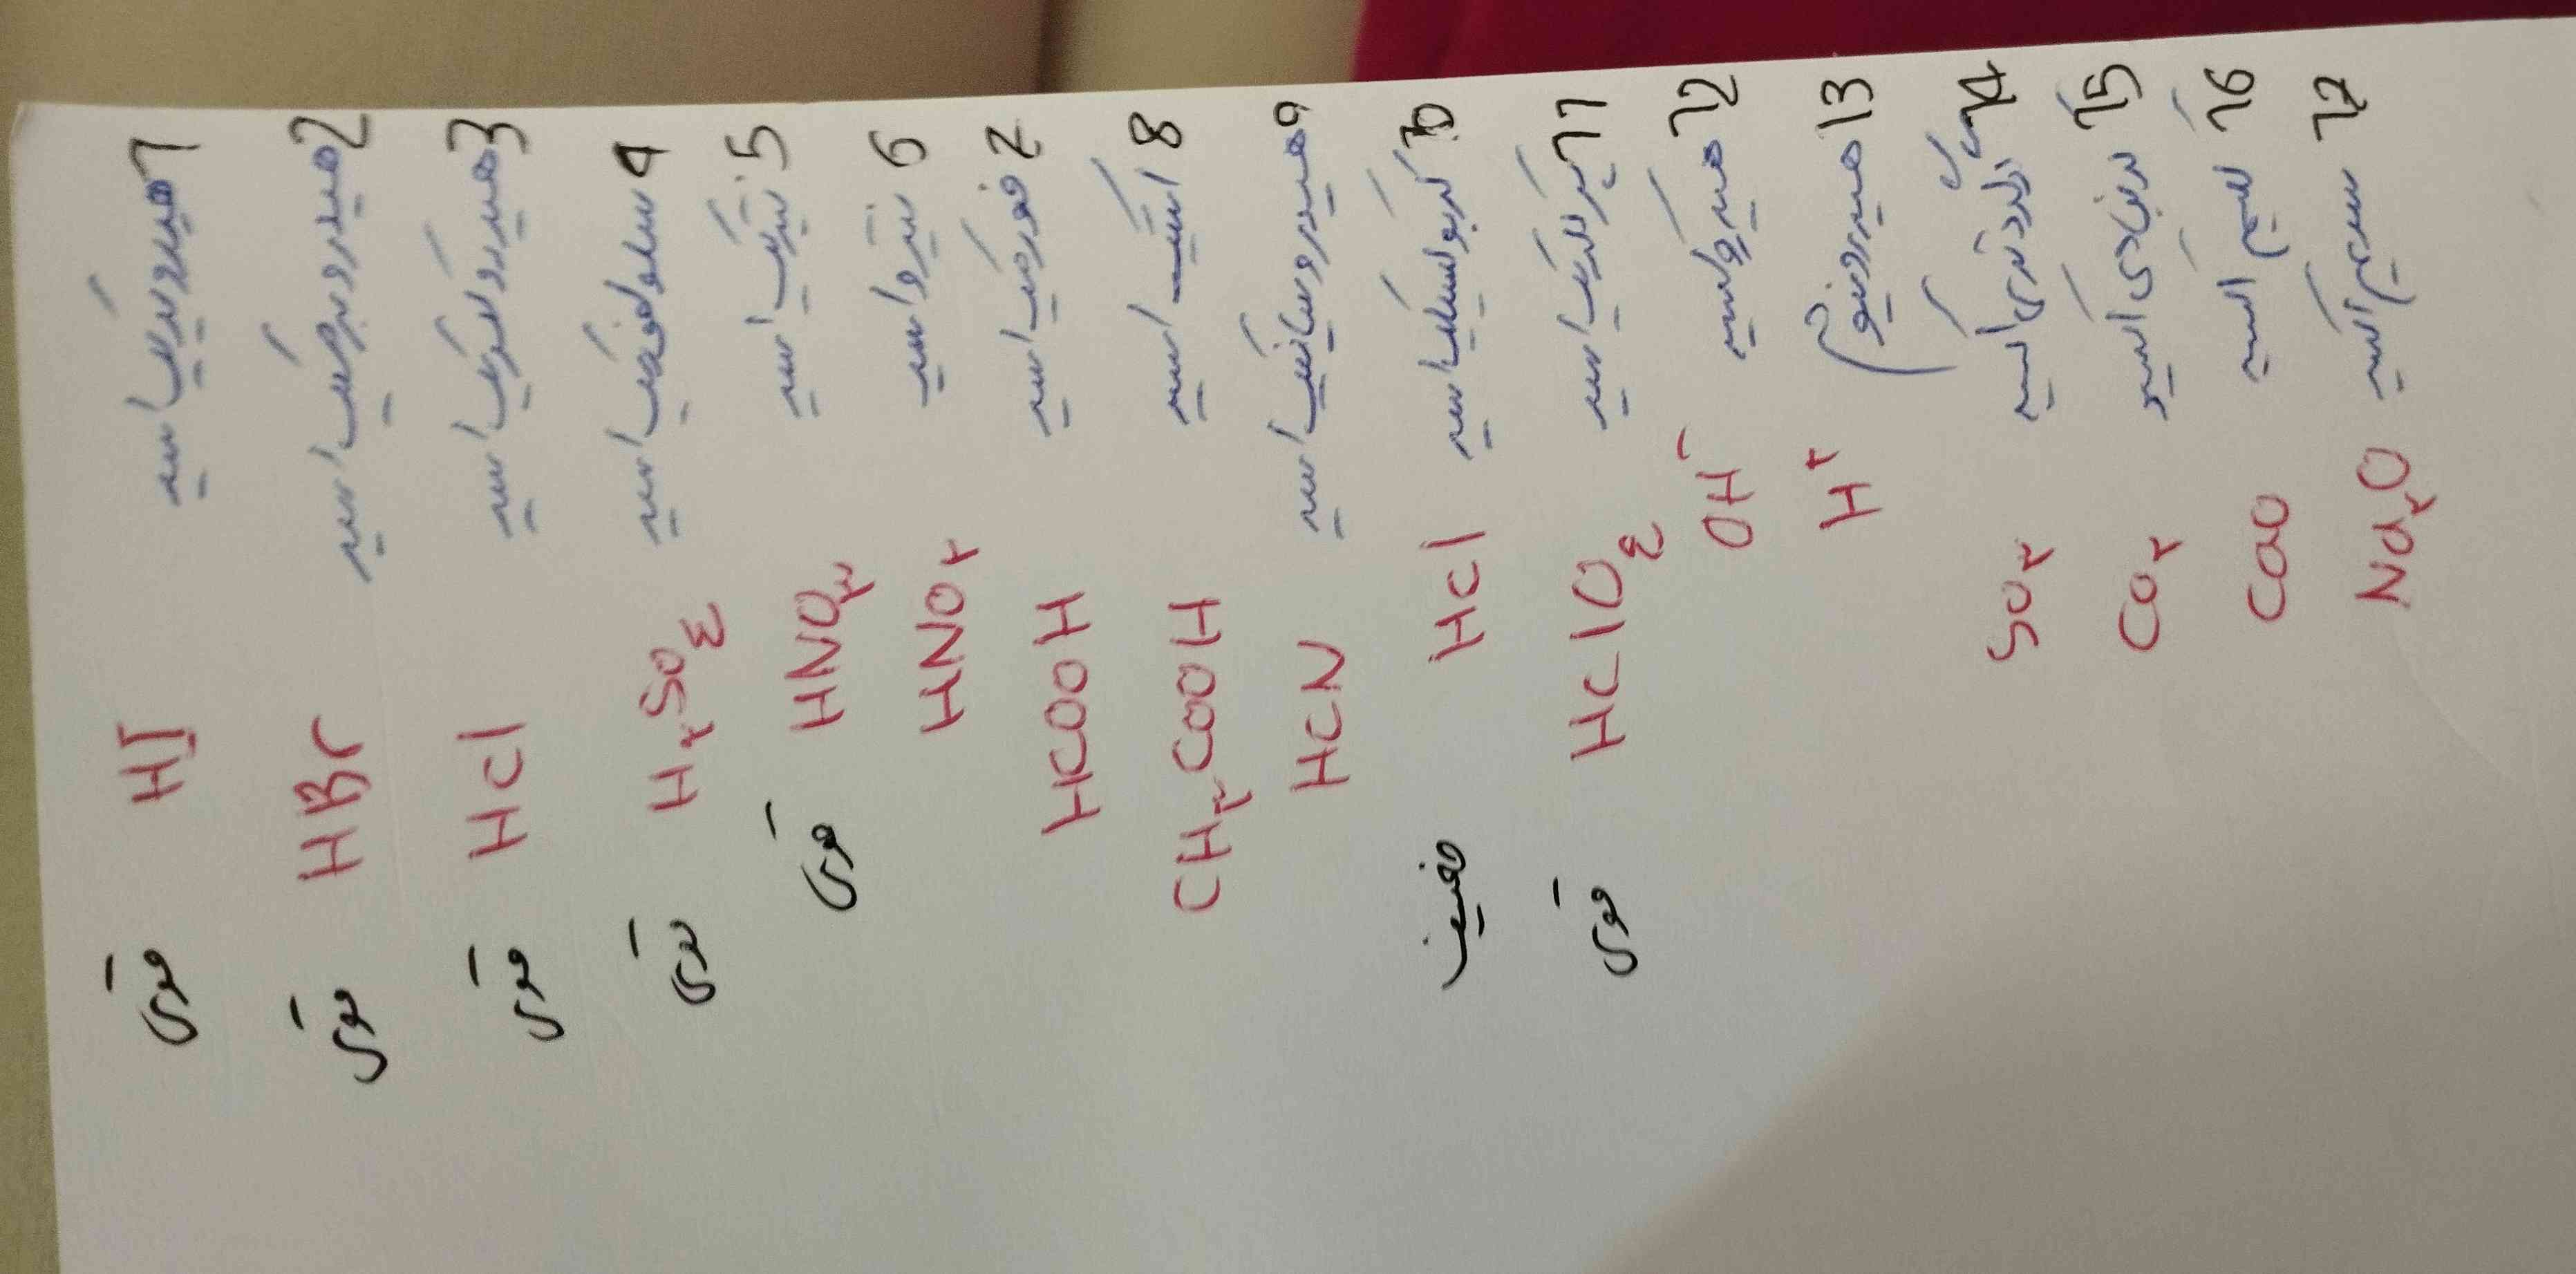 1 هیدرویدیک اسید HI قوی
2 هیدروبرمیک اسید HBr قوی
3 هیدروکلریک اسید HCl قوی
4 سولوفوریک اسید H۲SO۴ قوی
5 نیتریک اسید HNO۳ قوی
6 نیترو اسید HNO۲
7 فورمیک اسید HCOOH
8 استیک اسید CH۳COOH
9 هیدروسیانیک اسید HCN
10 اسید HCl ضعیف
11 پرکلریک اسید HClO۴ قوی
12 هیدروکسید OH-
13 هیدرونیوم H+
14 گوگرد تری اکسید SO۳
15 کربن دی اکسید CO۲
16 کلسیم اکسید CaO
17 سدیم اکسید Na۲O